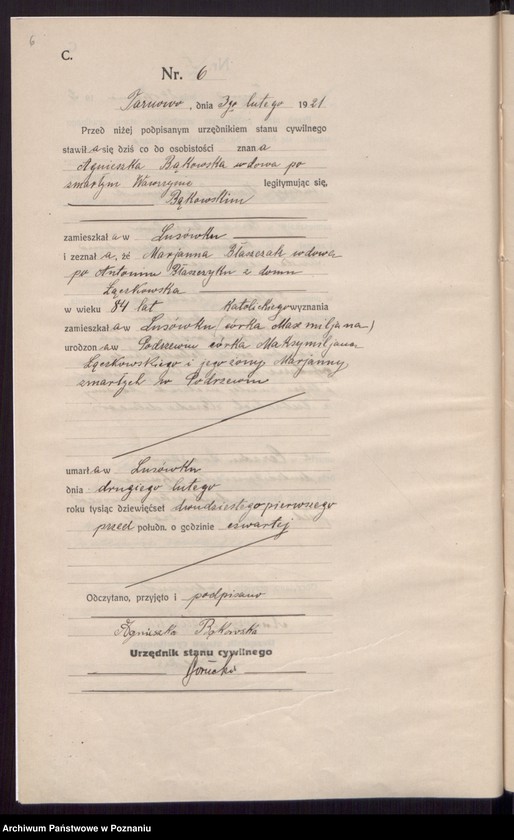 6
C.
Nr. 6
Tarnowo, dnia 3go lutego 1921
Przed niżej podpisanym urzędnikiem stanu cywilnego
stawiła się dziś co do osobistości znana
Agnieszka Bąkowska wdowa po
zmarłym Wawrzynie legitymując się,
Bąkowskim
zamieszkała w Lusówku
i zeznała, że Marjanna Błaszczak wdowa
po Antonim Błaszczyku z domu
Łączkowska
w wieku 84 lat katolickiego wyznania
zamieszkała w Lusówku (córka Maxmiljana)
urodzona w Podrzewiu córka Maksymiljana
Łączkowskiego i jego żony Marjanny
zmarłych w Podrzewiu
umarła w Lusówku
dnia drugiego lutego
roku tysiąc dziewięćset dwudziestego pierwszego
przed połudn. o godzinie czwartej
Odczytano, przyjęto i podpisano
Agnieszka Bąkowska
Urzędnik stanu cywilnego
Archiwum Państwowe w Poznaniu
szukajwarchiwach.gov.pl